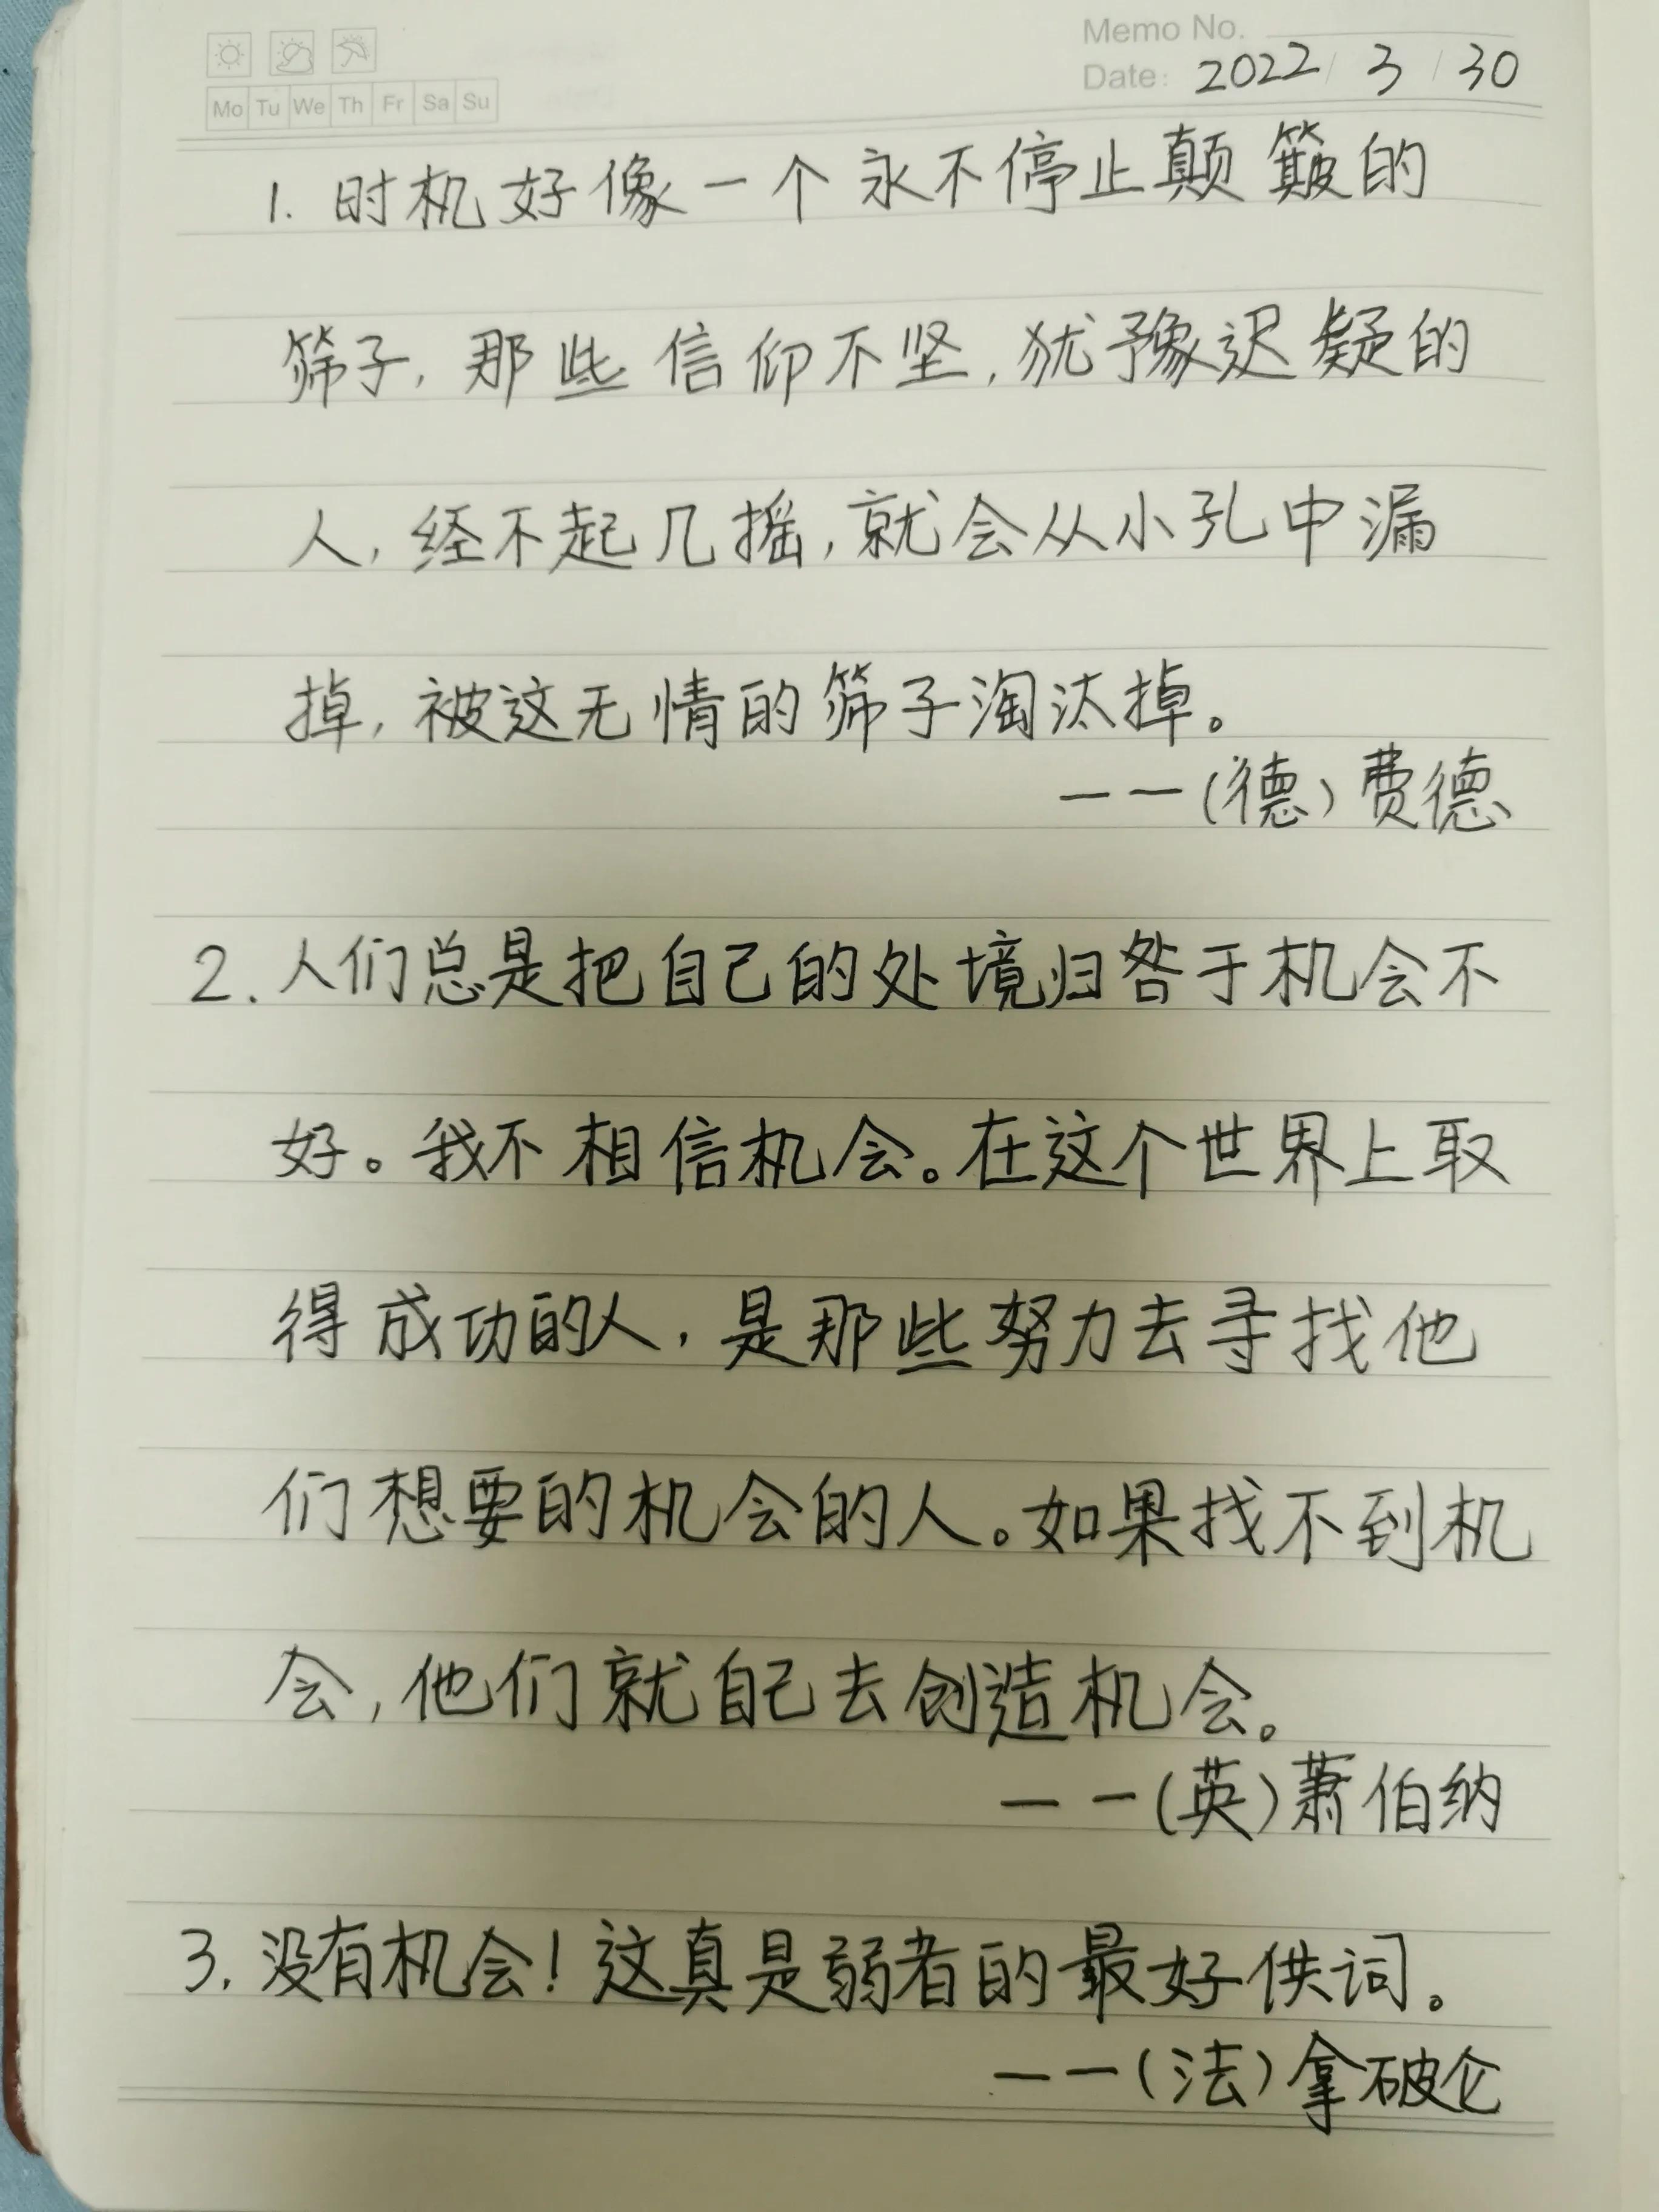 Memo No.
Mo Tu We Th Fr Sa Su
Date: 2022 / 3 / 30
1. 时机好像一个永不停止颠簸的
筛子,那些信仰不坚,犹豫迟疑的
人,经不起几摇,就会从小孔中漏
掉,被这无情的筛子淘汰掉。
——(德)费德
2.人们总是把自己的处境归咎于机会不
好。我不相信机会。在这个世界上取
得成功的人,是那些努力去寻找他
们想要的机会的人。如果找不到机
会,他们就自己去创造机会。
——(英)萧伯纳
3.没有机会!这真是弱者的最好供词。
——(法)拿破仑